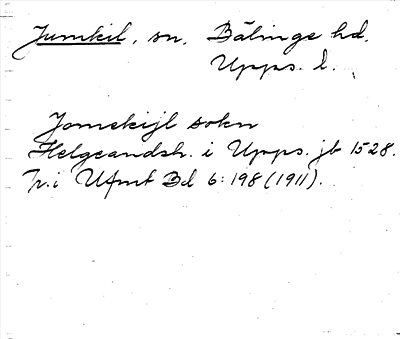 Jumkil, sn. Bälinge hd.
Upps. l.
Jomekijl sokn
Helgeandsh. i Upps. jb 1528.
Tr. i UFmt Bd 6:198 (1911).